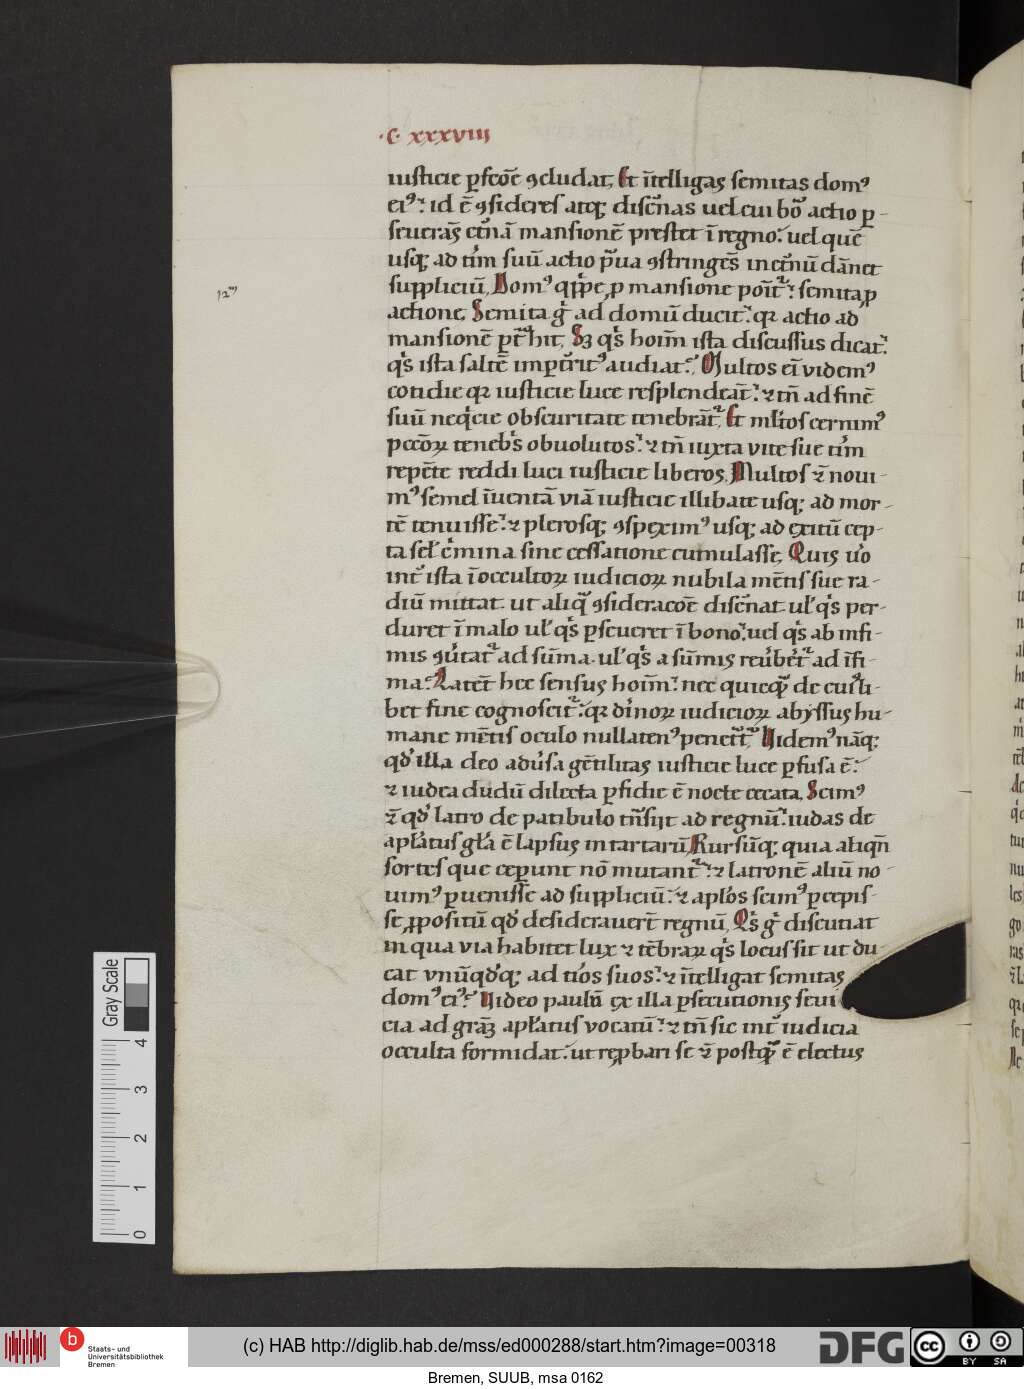 ·C· xxxviii
iusticie ꝑfcōe ꝯcludat, Et ītelligas semitas domꝰ
eiꝰ? id ē ꝯsideres atq; disc̄nas uel cui bō actio ꝑ-
seuerās et̄nā mansionē prestet ī regno? uel quē
usq; ad tīm suū actio p̄ua ꝯstringēs in et̄nū dānet
suppliciū, Domꝰ qͥppe ꝓ mansione poīt᷑? semita ꝓ
12ᵐ
actione, Semita gͥ ad domū ducit? qꝛ actio ad
mansionē pͬt᷑hit, Sꝫ qͥs hoīm ista discussus dicat?
qͥs ista saltē imp̄t̄ritꝰ audiat? Multos eī videmꝰ
cotidie qꝛ iusticie luce resplendeāt? ⁊ tn̄ ad finē
suū neqͥcie obscuritate tenebrāt᷑, Et ml̄tos cernimꝰ
pccōꝝ tenebͥs obuolutos? ⁊ tn̄ iuxta vite sue tīm
repēte reddi luci iusticie liberos, Multos ⁊̄ noui-
mꝰ semel īuentā viā iusticie illibate usq; ad mor-
tē tenuisse? ⁊ plerosq; ꝯspeximꝰ usq; ad exitū cep-
ta sel̄ c̄mina sine cessatione cumulasse, Quis ūo
int̄ ista ī occultoꝝ iudicioꝝ nubila mētis sue ra-
diū mittat. ut aliqͣ ꝯsideracōe disc̄nat ul̄ qͥs per-
duret ī malo ul̄ qͥs ꝑseueret ī bono? uel qͥs ab infi-
mis ꝯūtat᷑ ad sūma. ul̄ qͥs a sūmis reūbēt᷑ ad īfi-
ma? Latēt hec sensus hoīm? nec quicqͣ de cuiꝰli-
bet fine cognoscit᷑? qꝛ dīnoꝝ iudicioꝝ abyssus hu-
mane mētis oculo nullatenꝰ penet᷑t᷑, Uidemꝰ nāq;
qd̄ illa deo adūsa gētilitas iusticie luce ꝑfusa ē?
⁊ iudea dudū dilecta ꝑfidie ē nocte cecata, Scimꝰ
⁊̄ qd̄ latro de patibulo tn̄sijt ad regnū? iudas de
apl̄atus gl̄a ē lapsus in tartarū, Rursūq; quia aliqn̄
sortes que ceꝑunt nō mutant᷑? ⁊ latronē aliū no-
uimꝰ ꝑuenisse ad suppliciū? ⁊ apl̄os scimꝰ ꝑcepis-
se ꝓpositū qd̄ desiderauert̄ regnū, Qͥs gͥ discutiat
in qua via habitet lux ⁊ tēbraꝝ qͥs locus sit ut du-
cat vnūqd̄q; ad tīos suos? ⁊ ītelligat semitas
domꝰ eiꝰ? Uideo paulū ex illa ꝑsecutionis seui
cia ad grāꝫ apl̄atus vocatū? ⁊ tn̄ sic int̄ iudicia
occulta formidat? ut reꝓbari se ⁊̄ postqͣ ē electus
Gray Scale
0 1 2 3 4
b Staats- und
Universitätsbibliothek
Bremen
(c) HAB http://diglib.hab.de/mss/ed000288/start.htm?image=00318
DFG
cc BY SA
Bremen, SUUB, msa 0162